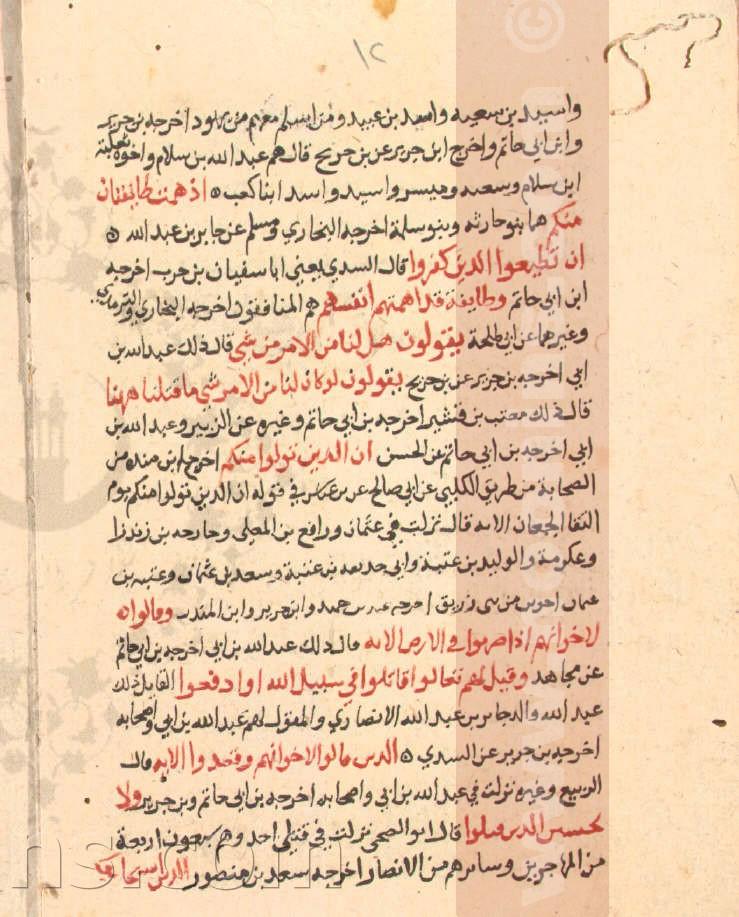 ١٢
واسيد بن سعيه واسد بن عبيد ومن اسلم معهم من يهود اخرجه بن جرير
وابن ابي حاتم واخرج ابن جرير عن بن جريج قال هم عبد الله بن سلام واخوه ثعلبة
ابن سلام وسعيه وميسر واسيد واسد ابنا كعب ه اذ همت طايفتان
منكم هما بنو حارثه وبنو سلمة اخرجه البخاري ومسلم عن جابر بن عبد الله ه
ان تطيعوا الذين كفروا قال السدي يعني ابا سفيان بن حرب اخرجه
ابن ابي حاتم وطايفة قد اهمتهم انفسهم هم المنافقون اخرجه البخاري والترمذي
وغيرهما عن ابي طلحة يقولون هل لنا من الامر من شي قال ذلك عبد الله بن
ابي اخرجه بن جرير عن بن جريج يقولون لو كان لنا من الامر شي ما قتلنا ههنا
قال ذلك معتب بن قشير اخرجه بن ابي حاتم وغيره عن الزبير وعبد الله بن
ابي اخرجه بن ابي حاتم عن الحسن ان الذين تولوا منكم اخرج ابن منده من
الصحابة من طريق الكلبي عن ابي صالح عن بن عباس في قوله ان الذين تولوا منكم يوم
التقا الجمعان الايه قال نزلت في عثمان ورافع بن المعلى وحارجه بن زيد
وعكرمة والوليد بن عتبة وابي حديفه بن عتبة وسعد بن عثمان وعتبه بن
عثمان اخوين من بني زريق اخرجه عبد بن حميد وابن جرير وابن المنذر وقالوا
لاخوانهم اذا ضربوا في الارض الايه قال ذلك عبد الله بن ابي اخرجه بن ابي حاتم
عن مجاهد وقيل لهم تعالوا قاتلوا في سبيل الله او ادفعوا القايل ذلك
عبد الله والد جابر بن عبد الله الانصاري والمقول لهم عبد الله بن ابي واصحابه
اخرجه بن جرير عن السدي ه الذين قالوا لاخوانهم وقعدوا الايه قال
الربيع وغيره نزلت في عبد الله بن ابي واصحابه اخرجه بن ابي حاتم وبن جرير ولا
تحسبن الذين قتلوا قال ابو الضحى نزلت في قتلى احد وهم سبعون اربعة
من المهاجرين وسايرهم من الانصار اخرجه سعد بن منصور الذين استجابوا